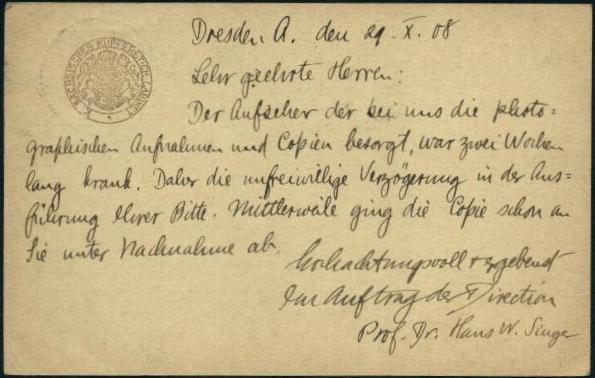 KÖN. SÄCHSISCHES KUPFERSTICH-CABINET
Dresden A. den 29. X. 08
Sehr geehrte Herren:
Der Aufseher der bei uns die photo=
graphischen Aufnahmen und Copien besorgt, war zwei Wochen
lang krank. Daher die unfreiwillige Verzögerung in der Aus=
führung Ihrer Bitte. Mittlerweile ging die Copie schon an
Sie unter Nachnahme ab.
hochachtungsvoll + ergebenst
Im Auftrag der Direction
Prof. Dr. Hans W. Singer